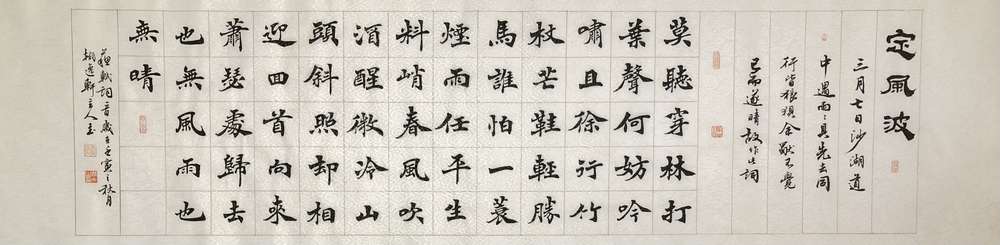 定風波
三月七日沙湖道
中遇雨々具先去同
行皆狼狽余獨不覺
已而遂晴故作此詞
莫聽穿林打
葉聲何妨吟
嘯且徐行竹
杖芒鞋輕勝
馬誰怕一蓑
煙雨任平生
料峭春風吹
酒醒微冷山
頭斜照却相
迎回首向來
蕭瑟處歸去
也無風雨也
無晴
蘇軾詞一首歲在壬寅之秋月
逸軒主人書